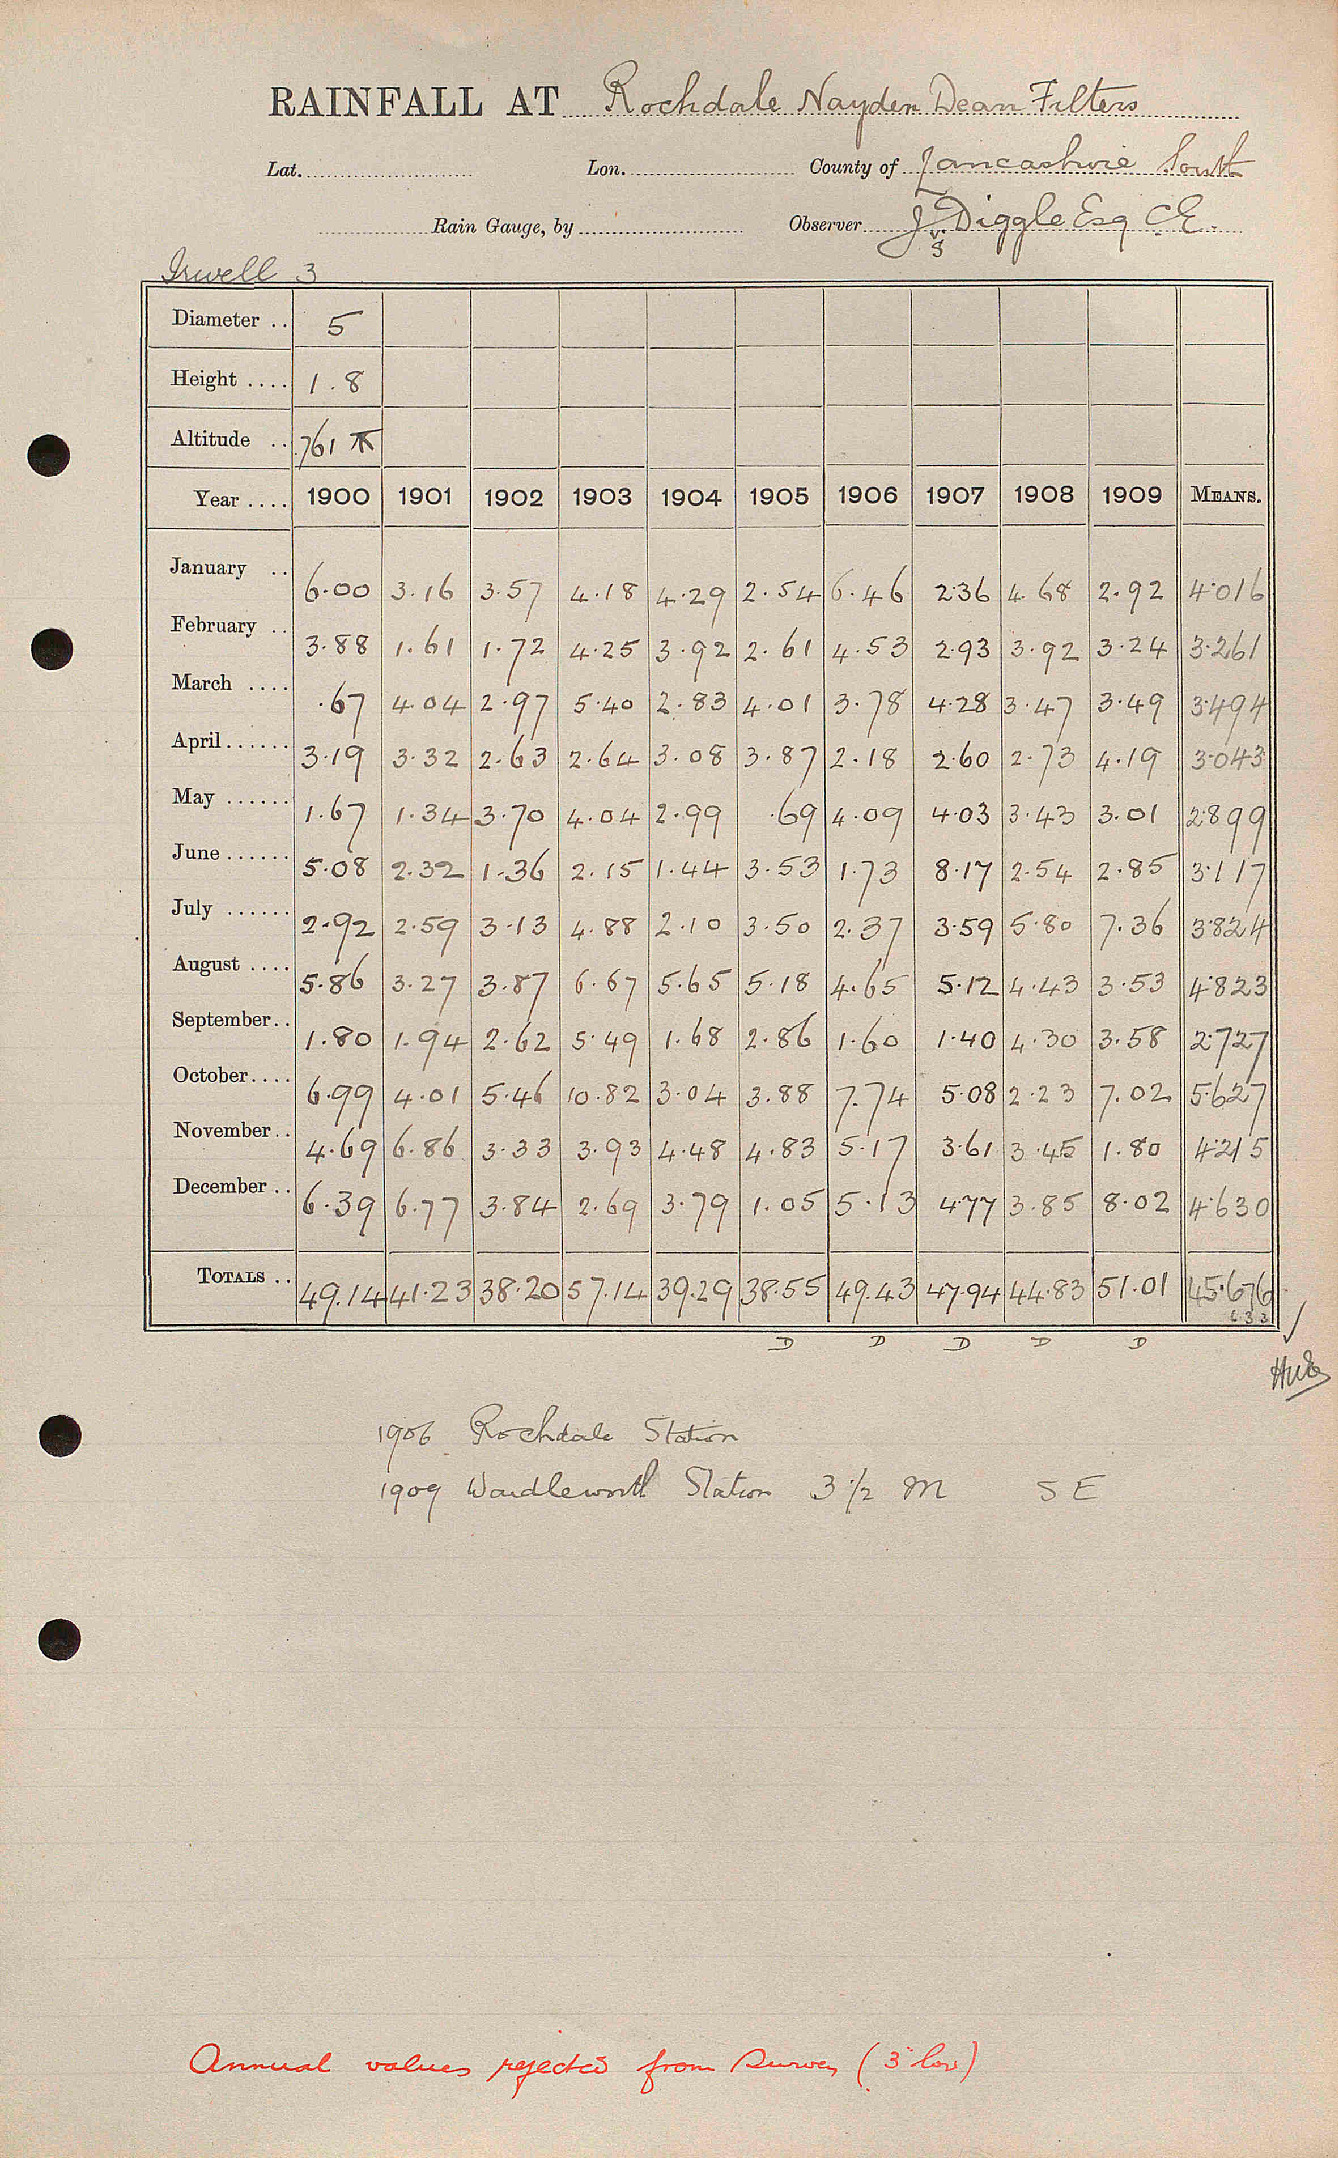 RAINFALL AT Rochdale Nayden Dean Filters
Lat. Lon. County of Lancashire South
Rain Gauge, by Observer J. Diggle Esq C.E.
Irwell 3
Diameter .. 5
Height .... 1.8
Altitude .. 761
Year .... 1900 1901 1902 1903 1904 1905 1906 1907 1908 1909 MEANS.
January .. 6.00 3.16 3.57 4.18 4.29 2.54 6.46 2.36 4.68 2.92 4.016
February .. 3.88 1.61 1.72 4.25 3.92 2.61 4.53 2.93 3.92 3.24 3.261
March .... .67 4.04 2.97 5.40 2.83 4.01 3.78 4.28 3.47 3.49 3.494
April...... 3.19 3.32 2.63 2.64 3.08 3.87 2.18 2.60 2.73 4.19 3.043
May ...... 1.67 1.34 3.70 4.04 2.99 .69 4.09 4.03 3.43 3.01 2.899
June...... 5.08 2.32 1.36 2.15 1.44 3.53 1.73 8.17 2.54 2.85 3.117
July ...... 2.92 2.59 3.13 4.88 2.10 3.50 2.37 3.59 5.80 7.36 3.824
August .... 5.86 3.27 3.87 6.67 5.65 5.18 4.65 5.12 4.43 3.53 4.823
September.. 1.80 1.94 2.62 5.49 1.68 2.86 1.60 1.40 4.30 3.58 2.727
October.... 6.99 4.01 5.46 10.82 3.04 3.88 7.74 5.08 2.23 7.02 5.627
November.. 4.69 6.86 3.33 3.93 4.48 4.83 5.17 3.61 3.45 1.80 4.215
December.. 6.39 6.77 3.84 2.69 3.79 1.05 5.13 4.77 3.85 8.02 4.630
TOTALS .. 49.14 41.23 38.20 57.14 39.29 38.55 49.43 47.94 44.83 51.01 45.676
D D D D D
1906 Rochdale Station
1909 Wardleworth Station 3 1/2 M SE
Annual values rejected from Survey (3" low)